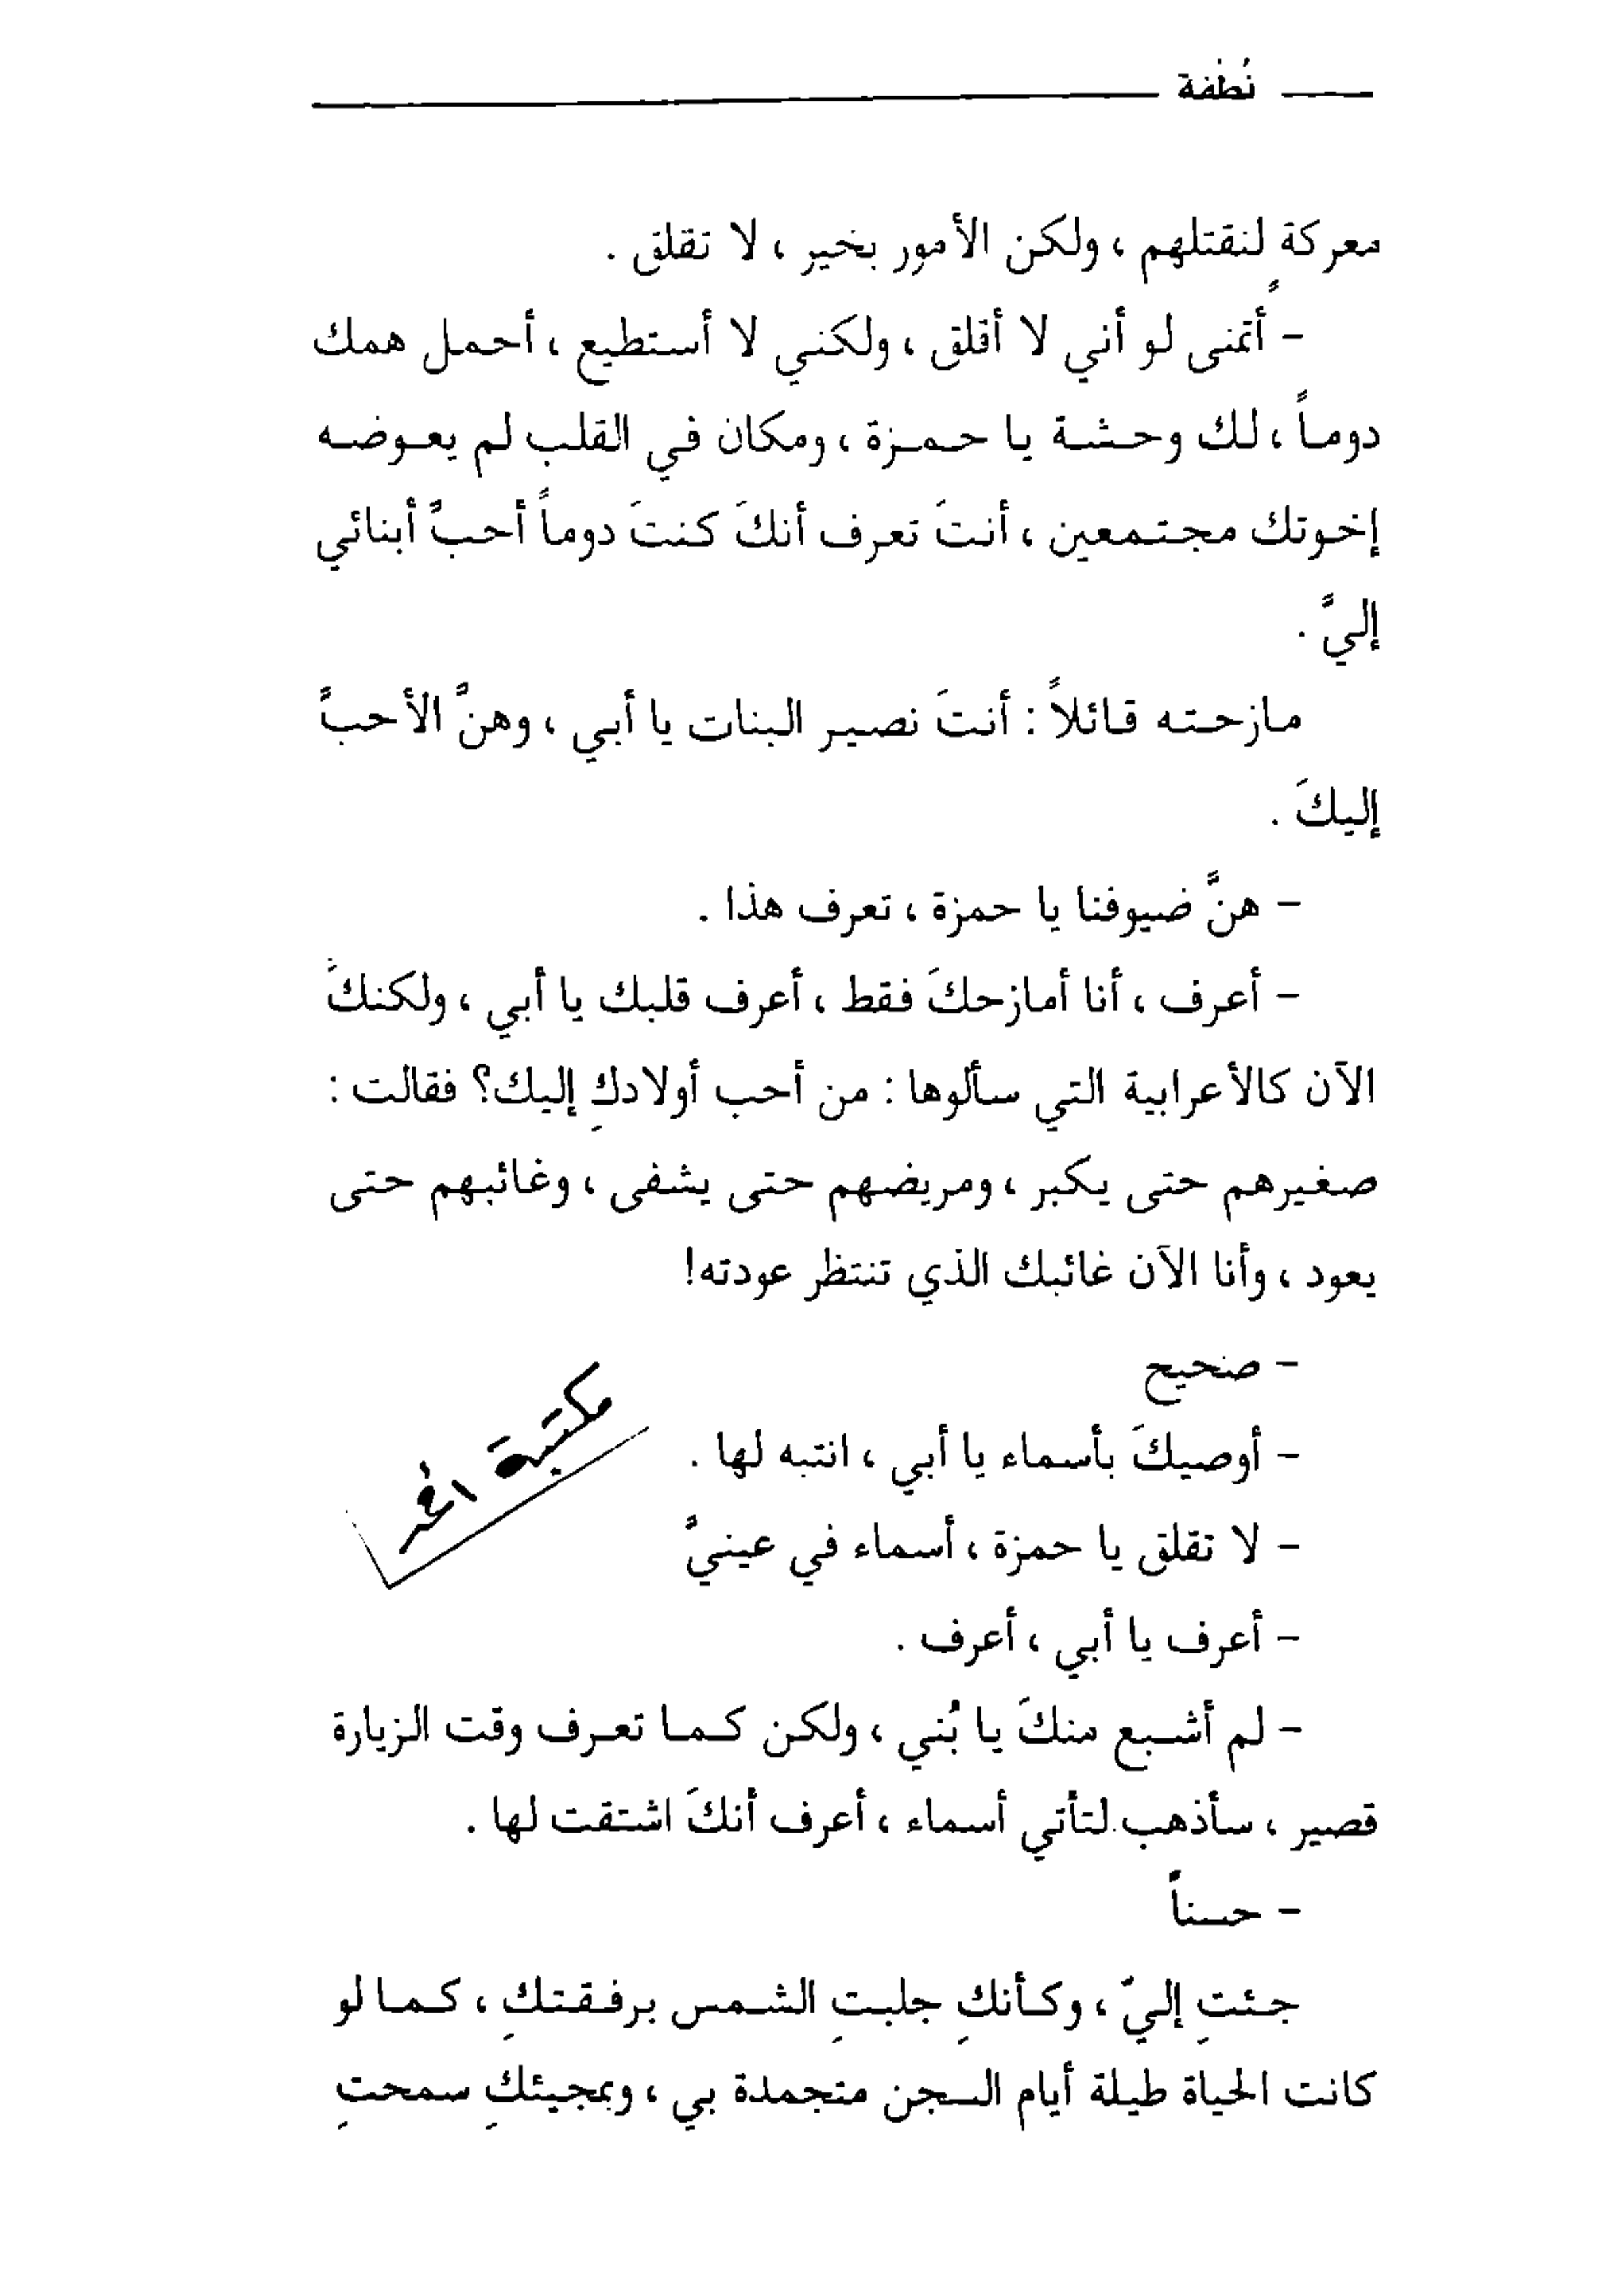 نُطْفة
معركةٍ لنقتلهم ، ولكن الأمور بخير ، لا تقلق .
- أتمنى لو أني لا أقلق ، ولكني لا أستطيع ، أحمل همك
دوماً ، لك وحشة يا حمزة ، ومكان في القلب لم يعوضه
إخوتك مجتمعين ، أنتَ تعرف أنكَ كنتَ دوماً أحبَّ أبنائي
إليَّ .
مازحته قائلاً : أنتَ نصير البنات يا أبي ، وهنَّ الأحبَّ
إليكَ .
- هنَّ ضيوفنا يا حمزة ، تعرف هذا .
- أعرف ، أنا أمازحكَ فقط ، أعرف قلبك يا أبي ، ولكنكَ
الآن كالأعرابية التي سألوها : من أحب أولادكِ إليك؟ فقالت :
صغيرهم حتى يكبر ، ومريضهم حتى يشفى ، وغائبهم حتى
يعود ، وأنا الآن غائبك الذي تنتظر عودته!
- صحيح
- أوصيكَ بأسماء يا أبي ، انتبه لها .
مكتبة
- لا تقلق يا حمزة ، أسماء في عينيَّ
- أعرف يا أبي ، أعرف .
- لم أشبع منكَ يا بُني ، ولكن كما تعرف وقت الزيارة
قصير ، سأذهب لتأتي أسماء ، أعرف أنكَ اشتقت لها .
- حسناً
جئتِ إليّ ، وكأنكِ جلبتِ الشمس برفقتكِ ، كما لو
كانت الحياة طيلة أيام السجن متجمدة بي ، وبمجيئكِ سمحتِ